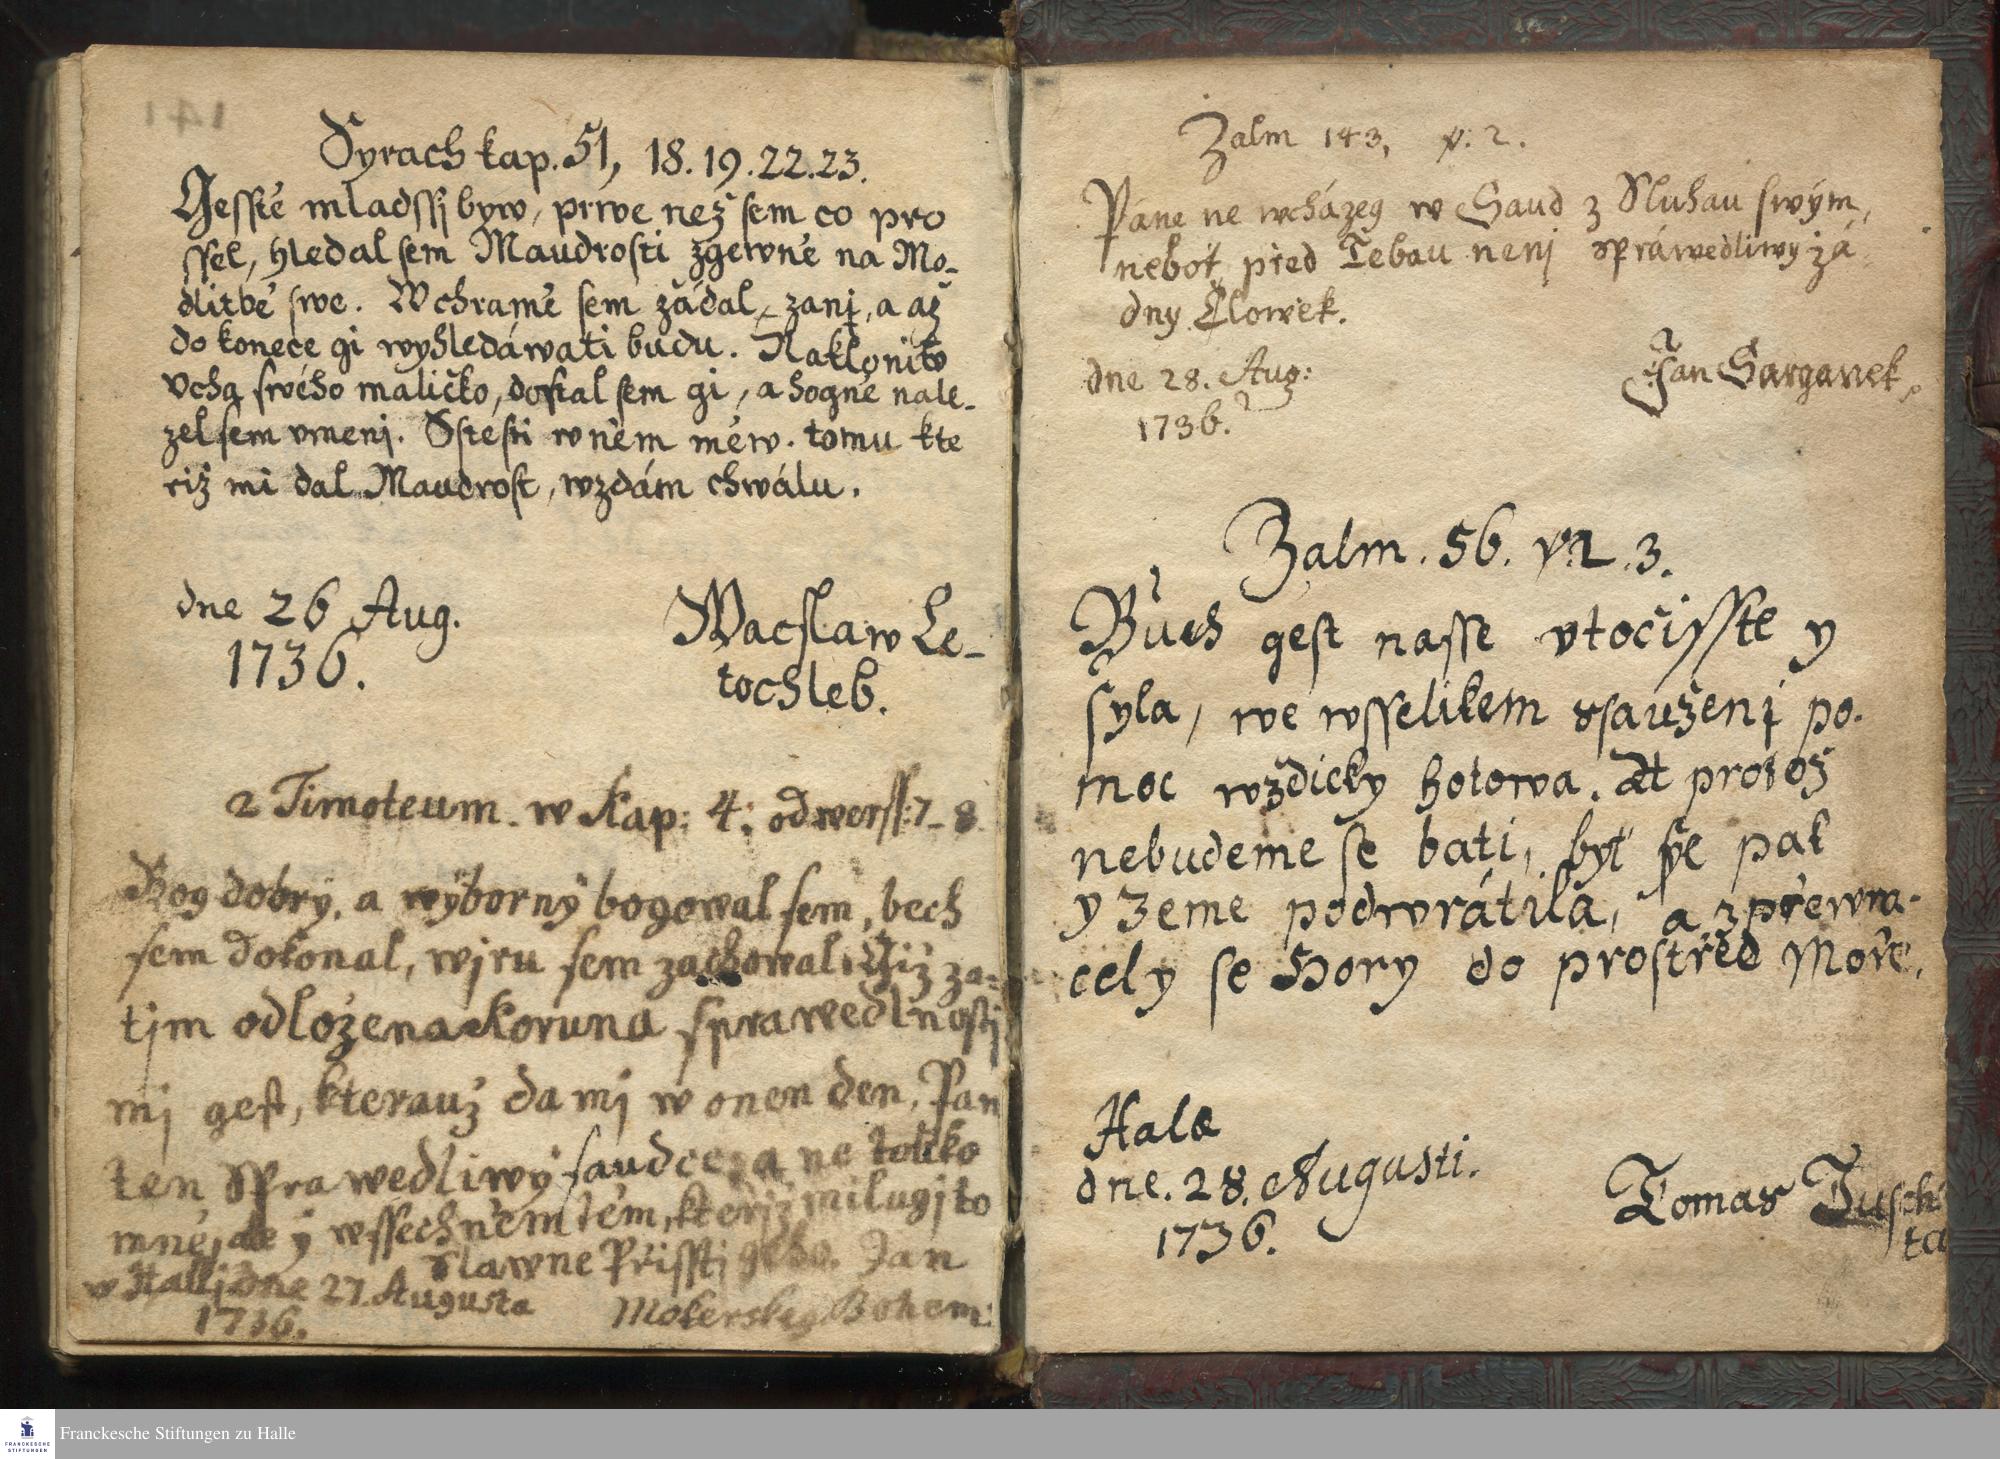 Syrach kap. 51, 18. 19. 22. 23.
Gessté mladssj byw, prwe než sem co pro
ssel, hledal sem Maudrosti zgewnė na Mo-
dlitbė swe. W chramė sem žádal zanj, a až
do konece gi wyhledáwati budu. Naklonilw
Vcha swého maličko, dostal sem gi, a hognė nale-
zel sem vmenj. Sstesti w nėm mėw. tomu kte
riž mi dal Maudrost, wzdám chwálu.
dne 26 Aug.
1736.
Wacslaw Le-
tochleb.
2 Timoteum. w Kap: 4: od werss: 7-8
Bog dobry, a wýborný bogowal sem, bech
sem dokonal, wjru sem zachowal. Giž za-
tjm odložena koruna sprawedlnosti
mj gest, kterauž da mj w onen den, Pan
ten sprawedliwý saudce, a ne toliko
mnė, ale ý wssechnėm tėm, kteřjž milugj to
slawne Přissti geho. Jan
w Hallj dne 27. Augusta
1736.
Mokersky Bohem:
Žalm 143, v: 2.
Pane ne wcházeg w Saud z Sluhau swým,
neboť před Tebau nenj spráwedliwy žá
dny Člowěk.
dne 28. Aug:
1736.
Jan Sarganek
Žalm. 56. v. 2. 3.
Bůch gest nasse vtočisste y
syla, we wsselikem ssauženj po-
moc wždicky hotowa. At protož
nebudeme se bati, byť se pak
y Zeme podwrátila, a zpřewra-
cely se Hory do prostřed Moře.
Halæ
dne. 28. Augusti.
1736.
Tomas Jusch
ta
Franckesche Stiftungen zu Halle
FRANCKESCHE
STIFTUNGEN